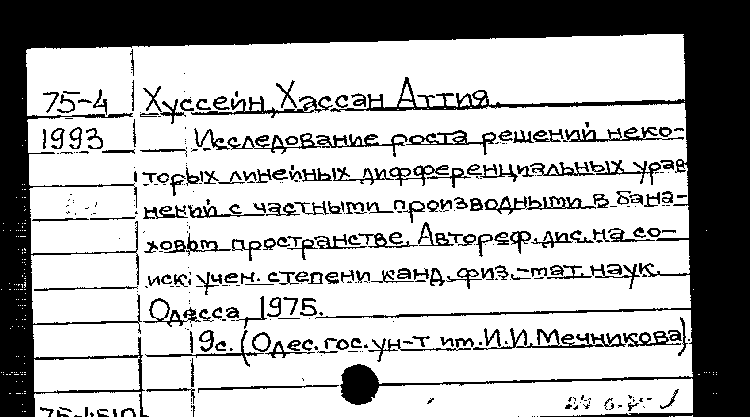 75-4 Хуссейн, Хассан Аттия.
1993 Исследование роста решений неко-
торых линейных дифференциальных урав
нений с частными производными в бана-
ховом пространстве. Автореф. дис. на со-
иск. учен. степени канд. физ.-мат. наук.
Одесса, 1975.
9с. (Одес. гос. ун-т им. И.И. Мечникова)